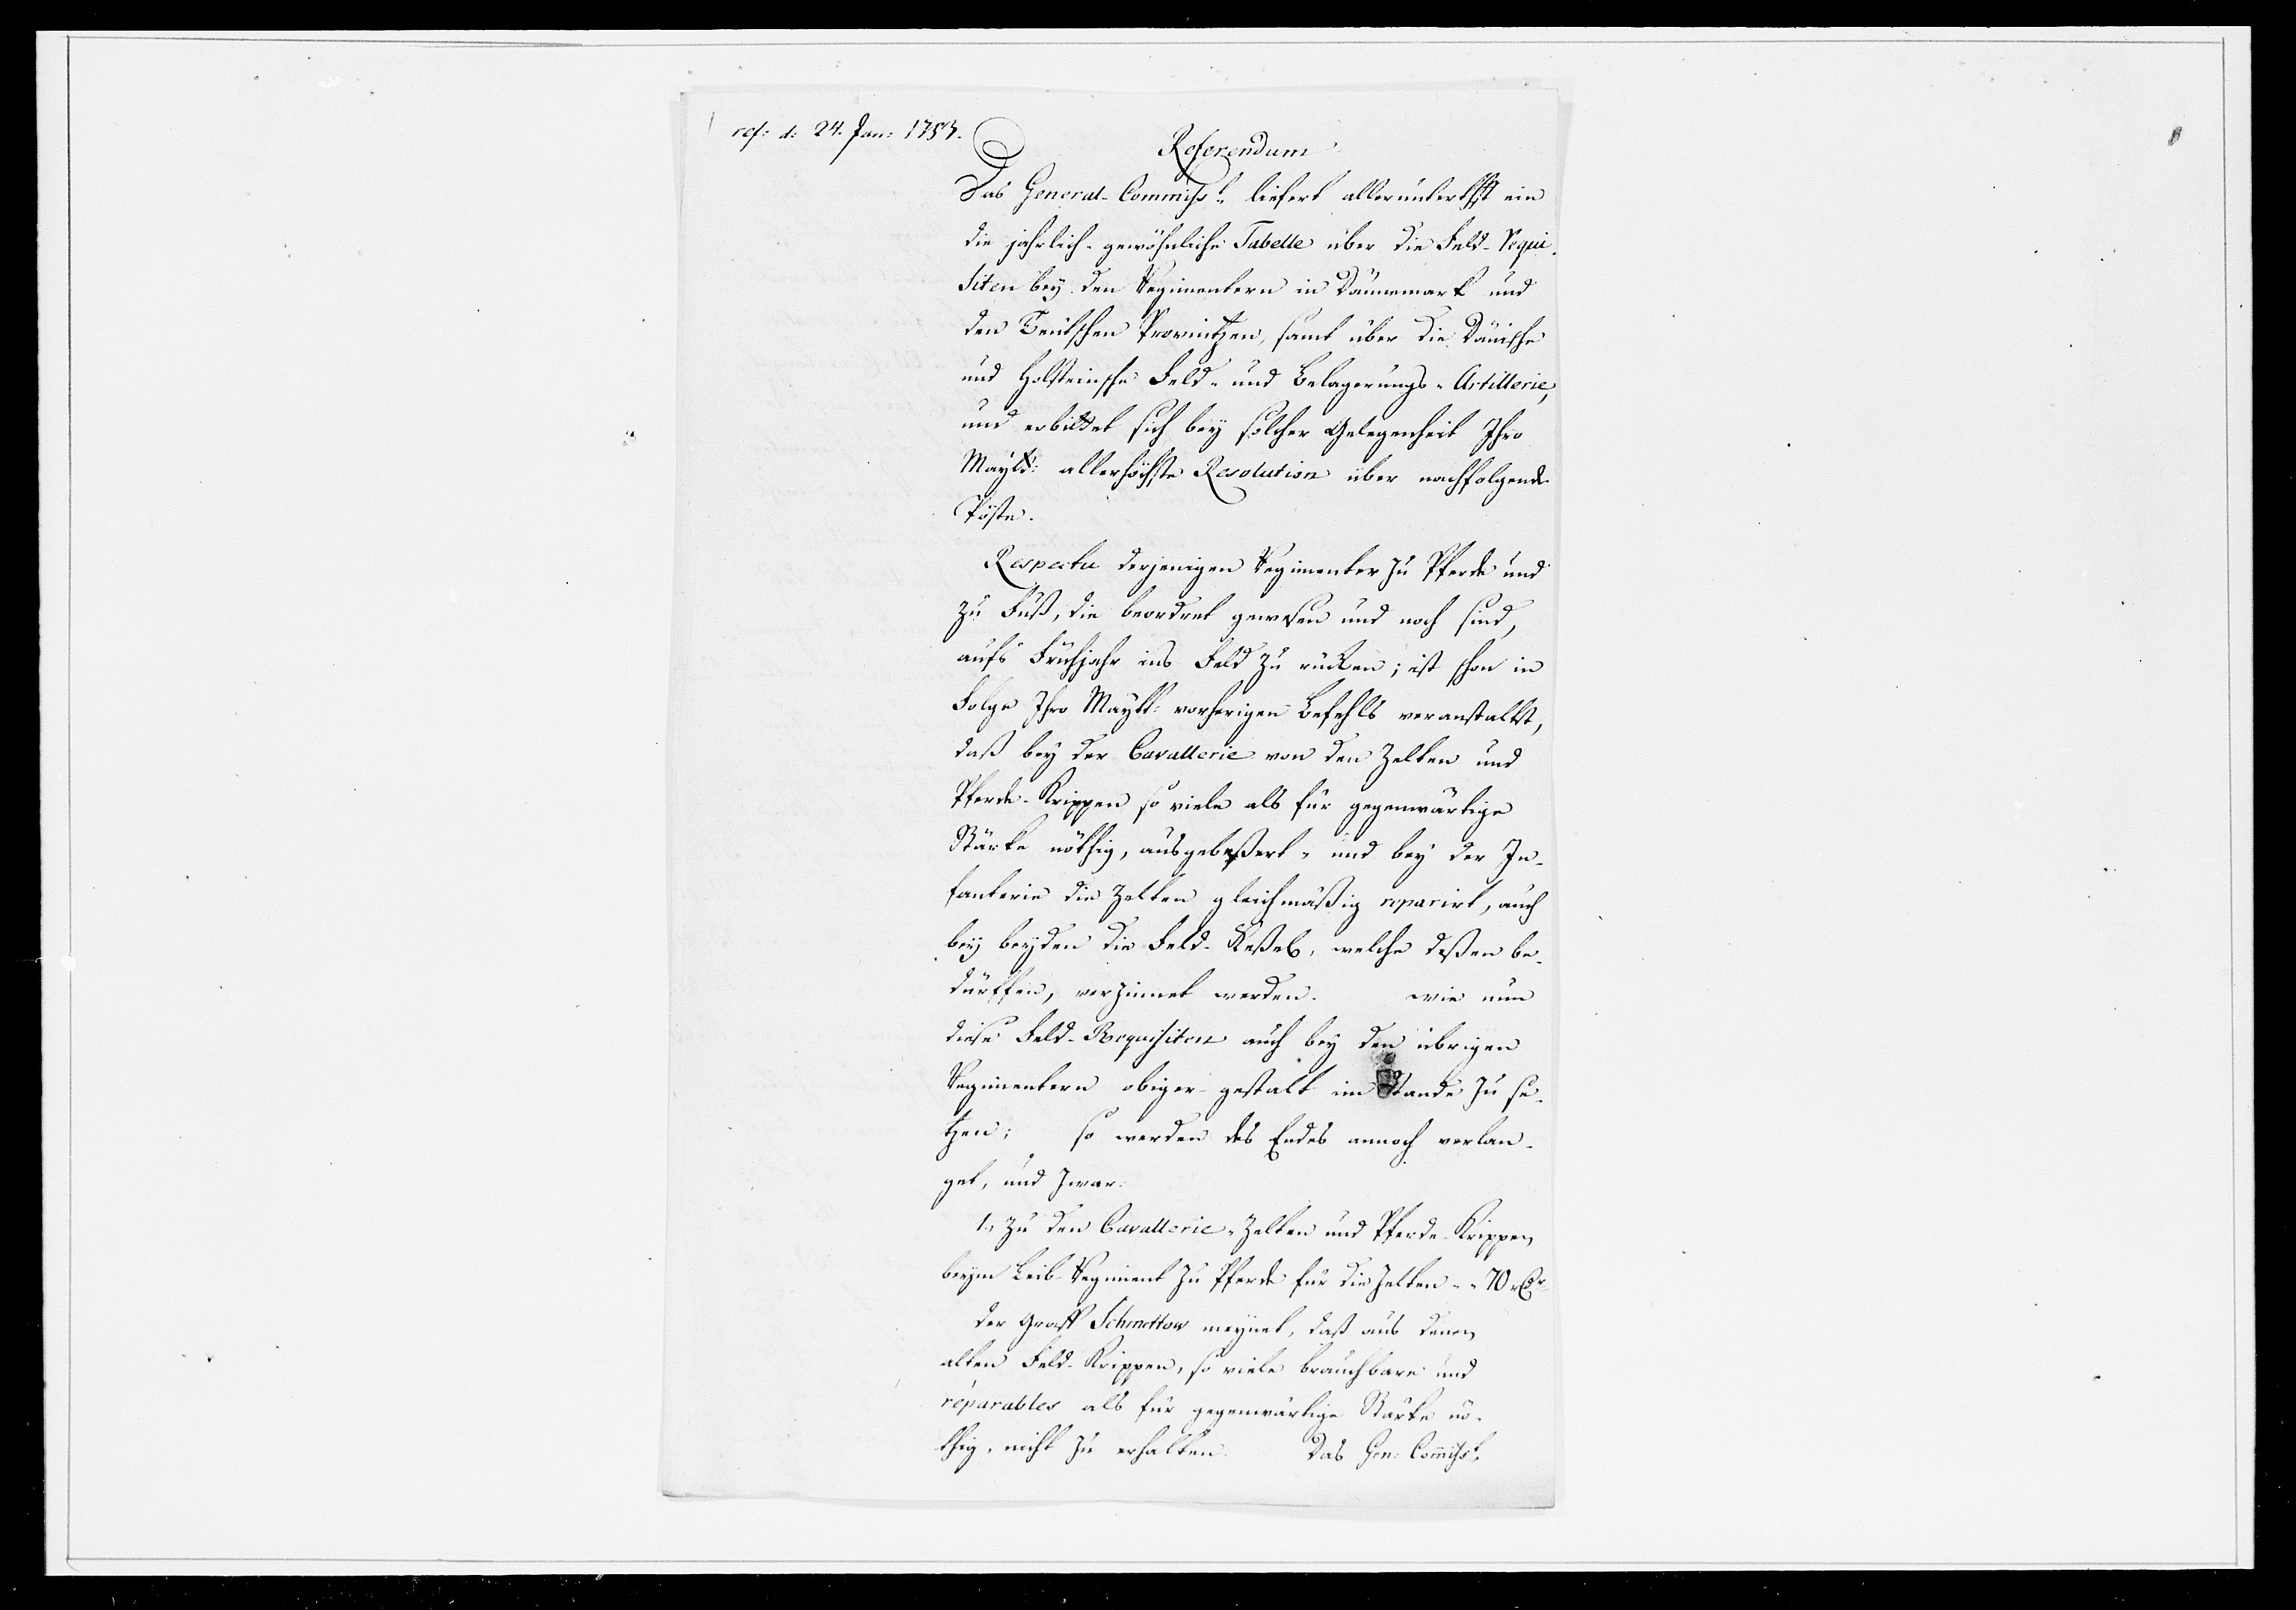 ref: d: 24. Jan: 1753.
Referendum
Das General-Commiss:t liefert allerunterthst ein
die jahrlich-gewöhnliche Tabelle über die Feld-Requi-
siten bey den Regimentern in Dännemark und
den Teutschen Provintzen, samt über die Dänische
und Holsteinsche Feld- und Belagerungs-Artillerie,
und erbittet sich bey solcher Gelegenheit Ihro
Maytt: allerhöchste Resolution über nachfolgende
Pöste.
Respectu derjenigen Regimenter zu Pferde und
zu Fuß, die beordret gewesen und noch sind,
aufs Frühjahr ins Feld zu rücken; ist schon in
Folge Ihro Maytt: vorherigen Befehls veranstaltet,
daß bey der Cavallerie von den Zelten und
Pferde-Krippen so viele als für gegenwärtige
Stärke nöthig, ausgebeßert- und bey der In-
fanterie die Zelten gleichmäßig reparirt, auch
bey beyden die Feld-Keßel, welche deßen be-
dürffen, verzinnet werden. wie nun
diese Feld-Requisiten auch bey den übrigen
Regimentern obiger gestalt im Stande zu se-
tzen; so werden des Endes annoch verlan-
get, und zwar:
1., Zu den Cavallerie-Zelten und Pferde-Krippen
beym Leib-Regiment zu Pferde für die Zelten - - 70 r
der Graff Schmettow meynet, daß aus denen
alten Feld-Krippen, so viele brauchbare und
réparables als für gegenwärtige Stärke nö-
thig, nicht zu erhalten. Das Gen: Commiss:t